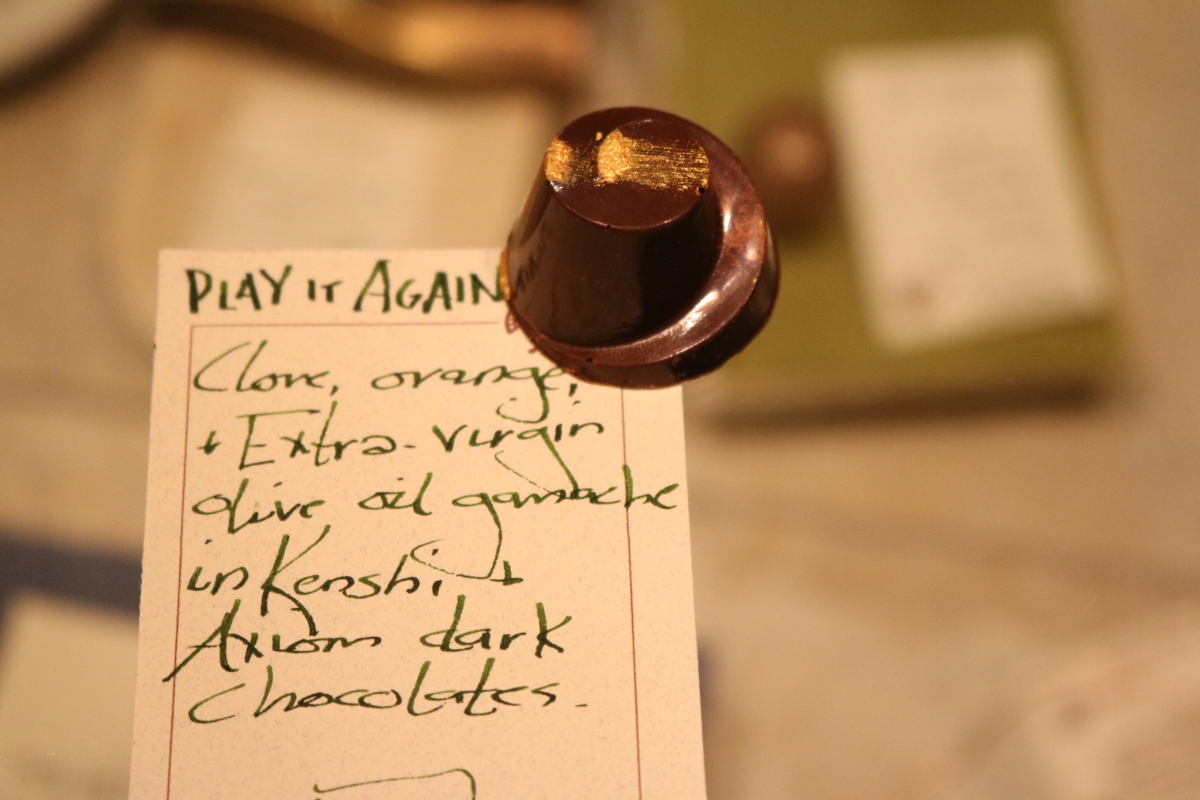 PLAY IT AGAIN
Clove, orange,
+ Extra-virgin
olive oil ganache
in Kenshi +
Axiom dark
chocolates.